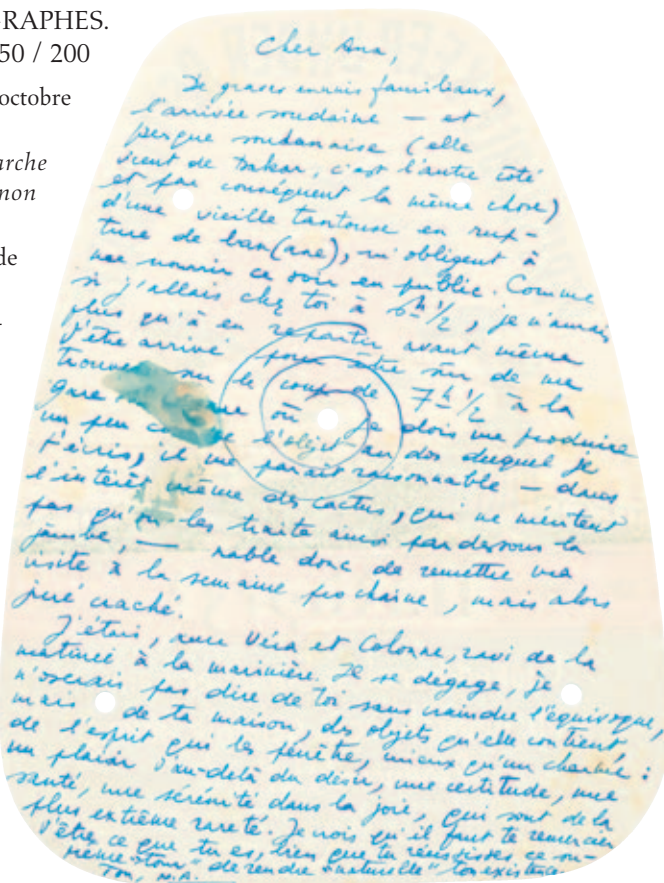 RAPHES.
50 / 200
octobre
arche
non
de
Cher Ana,
De graves ennuis familiaux,
l'arrivée soudaine — et
presque soudanaise (elle
vient de Dakar, c'est l'autre côté
et par conséquent la même chose)
d'une vieille tantouse en rup-
ture de ban(ane), m'obligent à
me nourrir ce soir en public. Comme
si j'allais chez toi à 6h 1/2, je n'aurais
plus qu'à en repartir avant même
d'être arrivé pour être sûr de me
trouver sur le coup de 7h 1/2 à la
gare où je dois me produire
un peu l'objet au dos duquel je
t'écris, il me paraît raisonnable — dans
l'intérêt même des cactus, qui ne méritent
pas qu'on les traite ainsi par dessous la
jambe, — nable donc de remettre ma
visite à la semaine prochaine, mais alors
juré craché.
J'étais, avec Véra et Colonne, ravi de la
matinée à la marinière. Il se dégage, je
n'oserais pas dire de toi sans craindre l'équivoque,
mais de ta maison, des objets qu'elle contient,
de l'esprit qui les pénètre, mieux qu'un charme :
un plaisir au-delà du désir, une certitude, une
santé, une sérénité dans la joie, qui sont de la
plus extrême rareté. Je crois qu'il faut te remercier
d'être ce que tu es, bien que tu réussisses ce su-
prême "tour" de rendre "naturelle" ton existence.
Ton, M.A.